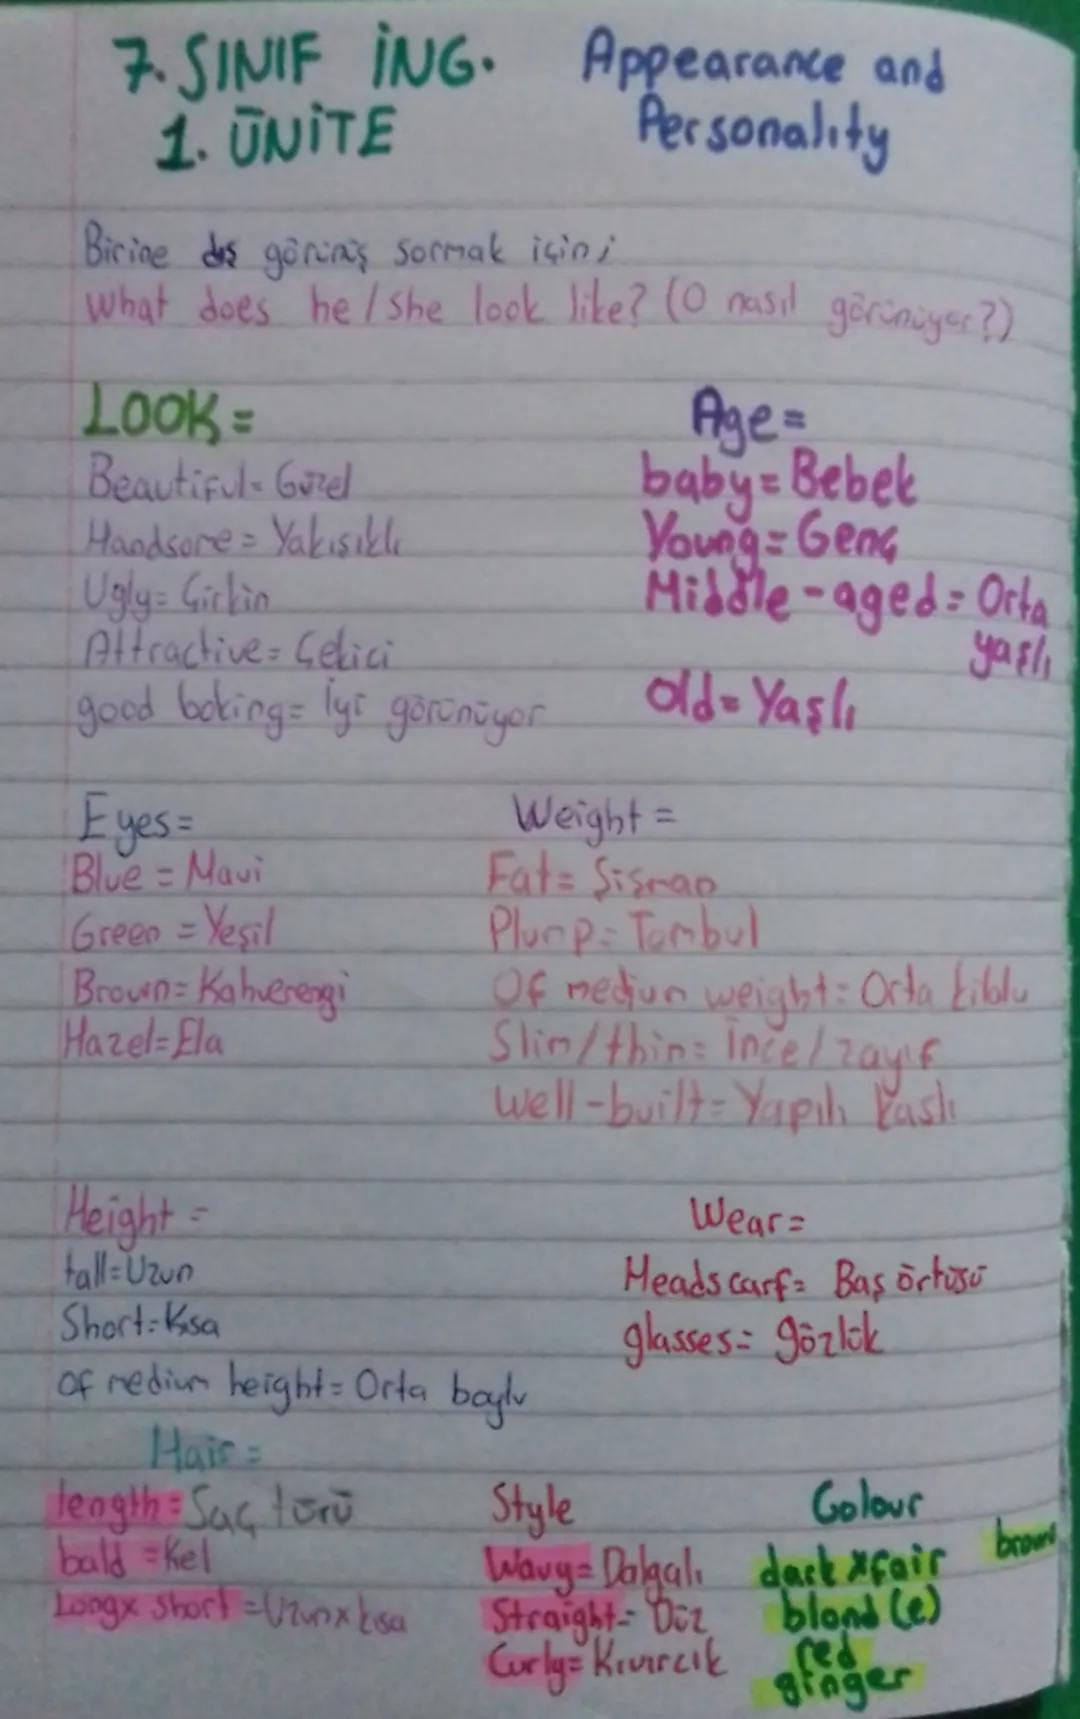 7. SINIF İNG.
1. ÜNİTE
Appearance and
Personality
Birine dış görünüş sormak için;
What does he/she look like? (O nasıl görünüyor?)
LOOK=
Beautiful= Güzel
Handsome= Yakışıklı
Ugly= Çirkin
Attractive= Çekici
good looking= İyi görünüyor
Age=
baby= Bebek
Young= Genç
Middle-aged= Orta
yaşlı
Old= Yaşlı
Eyes=
Blue = Mavi
Green = Yeşil
Brown= Kahverengi
Hazel= Ela
Weight =
Fat= Şişman
Plump= Tombul
Of medium weight= Orta kiblu
Slim/thin= İnce/zayıf
Well-built= Yapılı kaslı
Height =
tall=Uzun
Short=Kısa
of medium height= Orta boylu
Wear=
Headscarf= Baş örtüsü
glasses= gözlük
Hair =
length= Saç türü
bald =Kel
Longx short =Uzunxkısa
Style
Wavy= Dalgalı
Straight= Düz
Curly= Kıvırcık
Colour
dark xfair brown
blond(e)
red
ginger